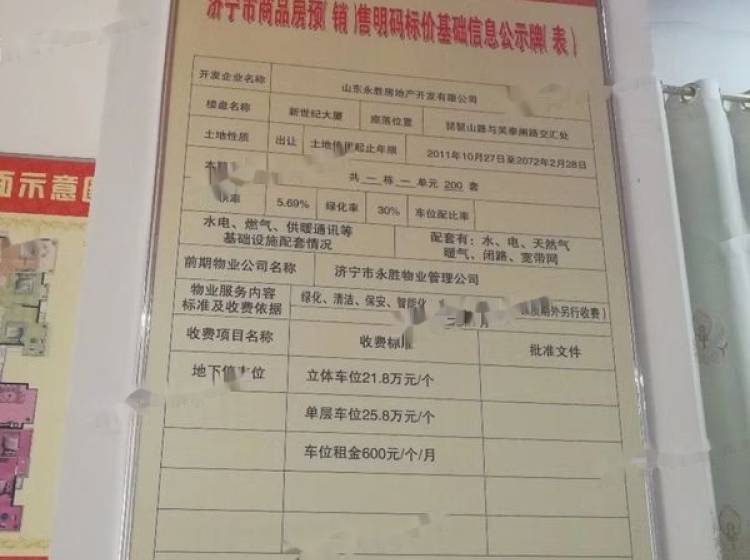 济宁市商品房预(销)售明码标价基础信息公示牌(表)
开发企业名称 山东永胜房地产开发有限公司
楼盘名称 新世纪大厦 座落位置 琵琶山路与英泰闸路交汇处
土地性质 出让 土地使用起止年限 2011年10月27日至2072年2月28日
本期 共 一 栋 一 单元 200 套
率 5.69% 绿化率 30% 车位配比率
水电、燃气、供暖通讯等
基础设施配套情况
配套有:水、电、天然气
暖气、闭路、宽带网
前期物业公司名称 济宁市永胜物业管理公司
物业服务内容
标准及收费依据
绿化、清洁、保安、智能化 期外另行收费)
月
收费项目名称 收费标准 批准文件
地下停车位 立体车位21.8万元/个
单层车位25.8万元/个
车位租金600元/个/月
面示意图